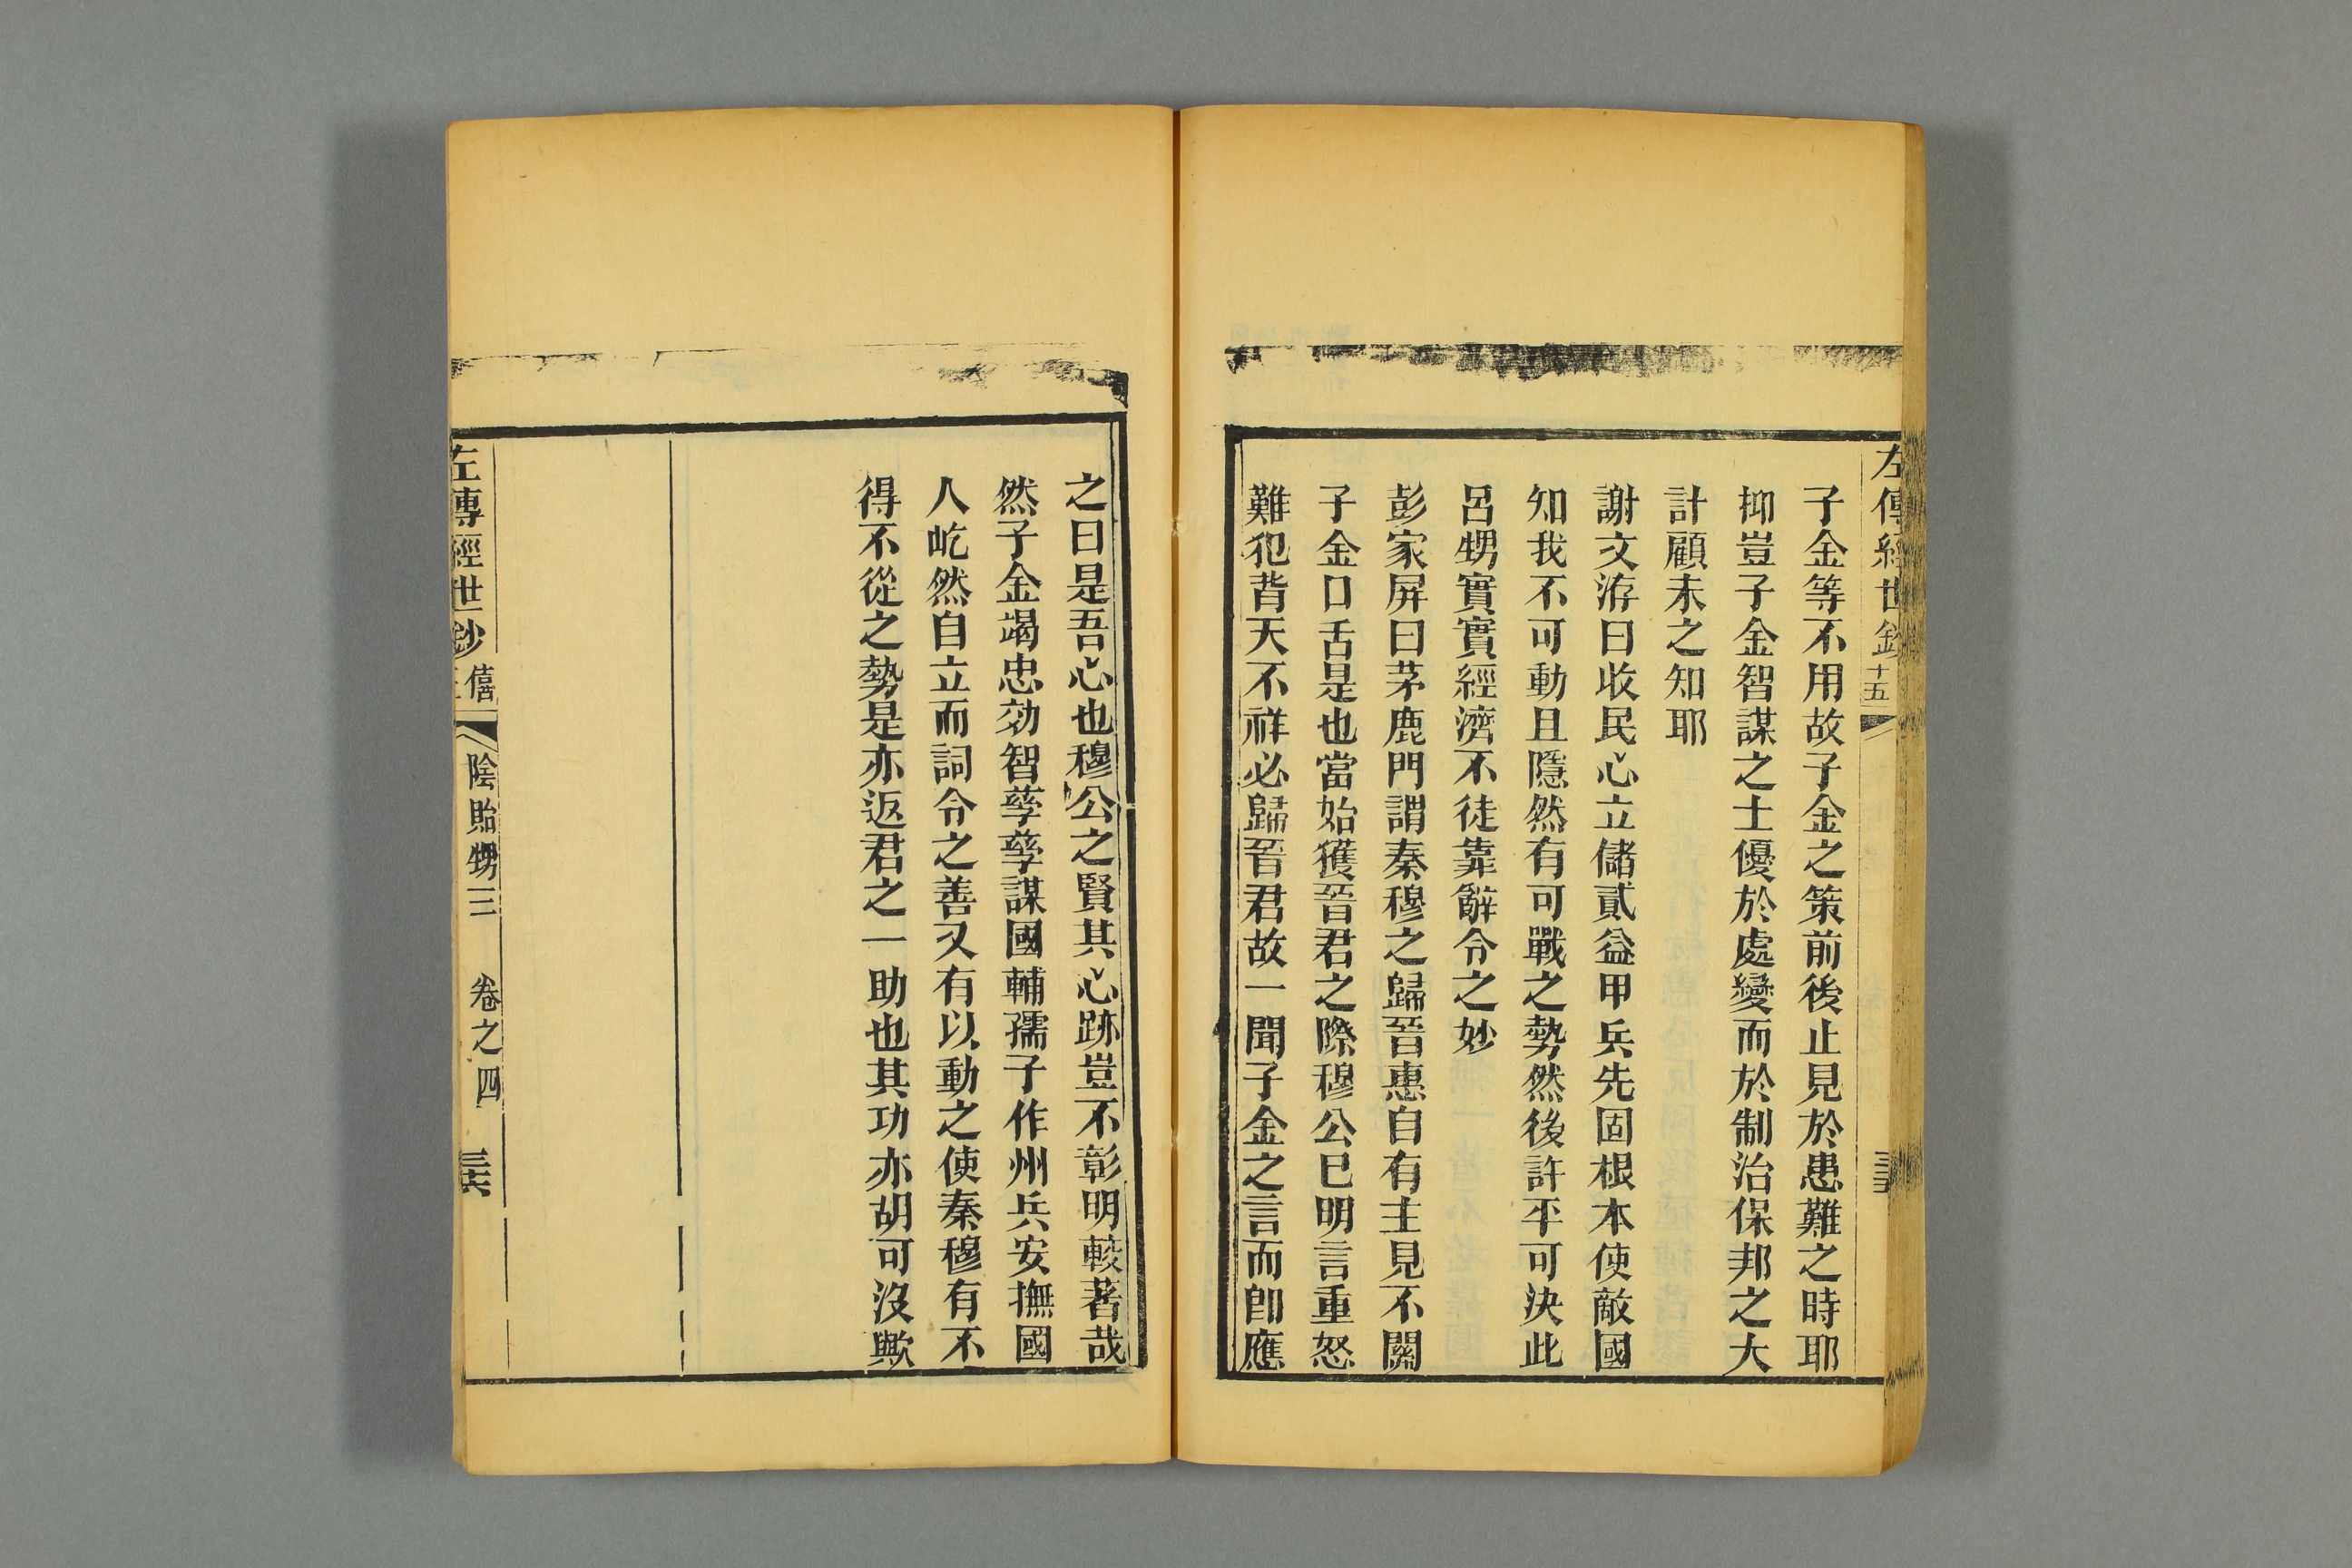 左傳經世鈔
十五
子金等不用故子金之策前後止見於患難之時耶
抑豈子金智謀之士優於處變而於制治保邦之大
計顧未之知耶
謝文洊曰收民心立儲貳益甲兵先固根本使敵國
知我不可動且隱然有可戰之勢然後許平可決此
呂甥實實經濟不徒靠辭令之妙
彭家屏曰茅鹿門謂秦穆之歸晉惠自有主見不關
子金口舌是也當始獲晉君之際穆公已明言重怒
難犯背天不祥必歸晉君故一聞子金之言而卽應
之曰是吾心也穆公之賢其心跡豈不彰明較著哉
然子金竭忠効智孳孳謀國輔孺子作州兵安撫國
人屹然自立而詞令之善又有以動之使秦穆有不
得不從之勢是亦返君之一助也其功亦胡可沒歟
左傳經世鈔 僖 陰飴甥三 卷之四 三六